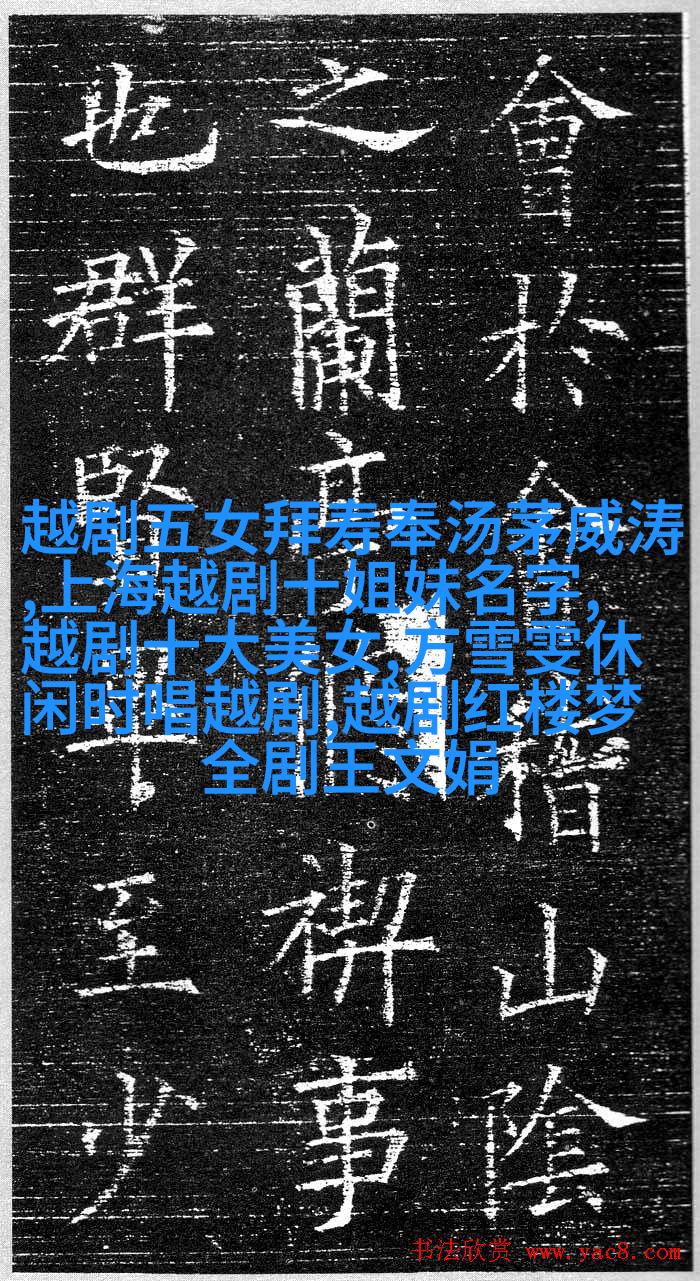 會於會稽山陰
之蘭亭禊事
也群賢畢至少
越剧五女拜寿奉汤茅威涛
,上海越剧十姐妹名字,
越剧十大美女,方雪雯休
闲时唱越剧,越剧红楼梦
全剧王文娟
书法欣赏 www.yac8.com